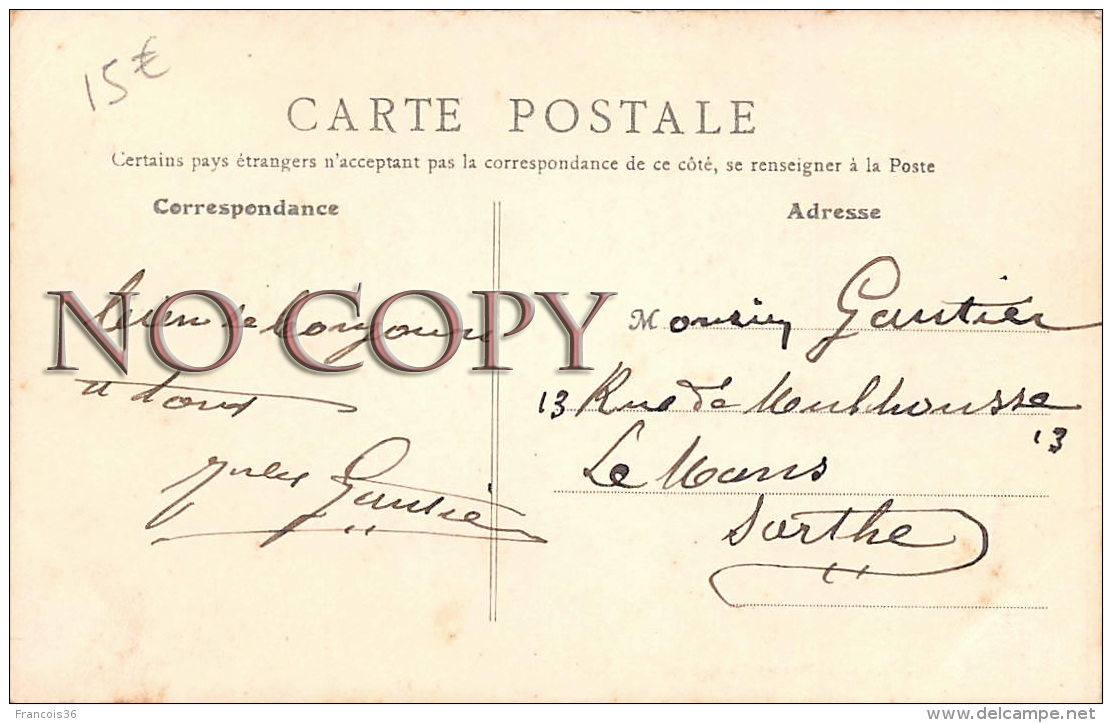 15€
CARTE POSTALE
Certains pays étrangers n'acceptant pas la correspondance de ce côté, se renseigner à la Poste
Correspondance
Adresse
bien le bonjours
a tous
Jules Gautié
NO COPY
Monsieur Gautier
13 Rue de Mulhousse
13
Le Mans
Sarthe
Francois36
www.delcampe.net